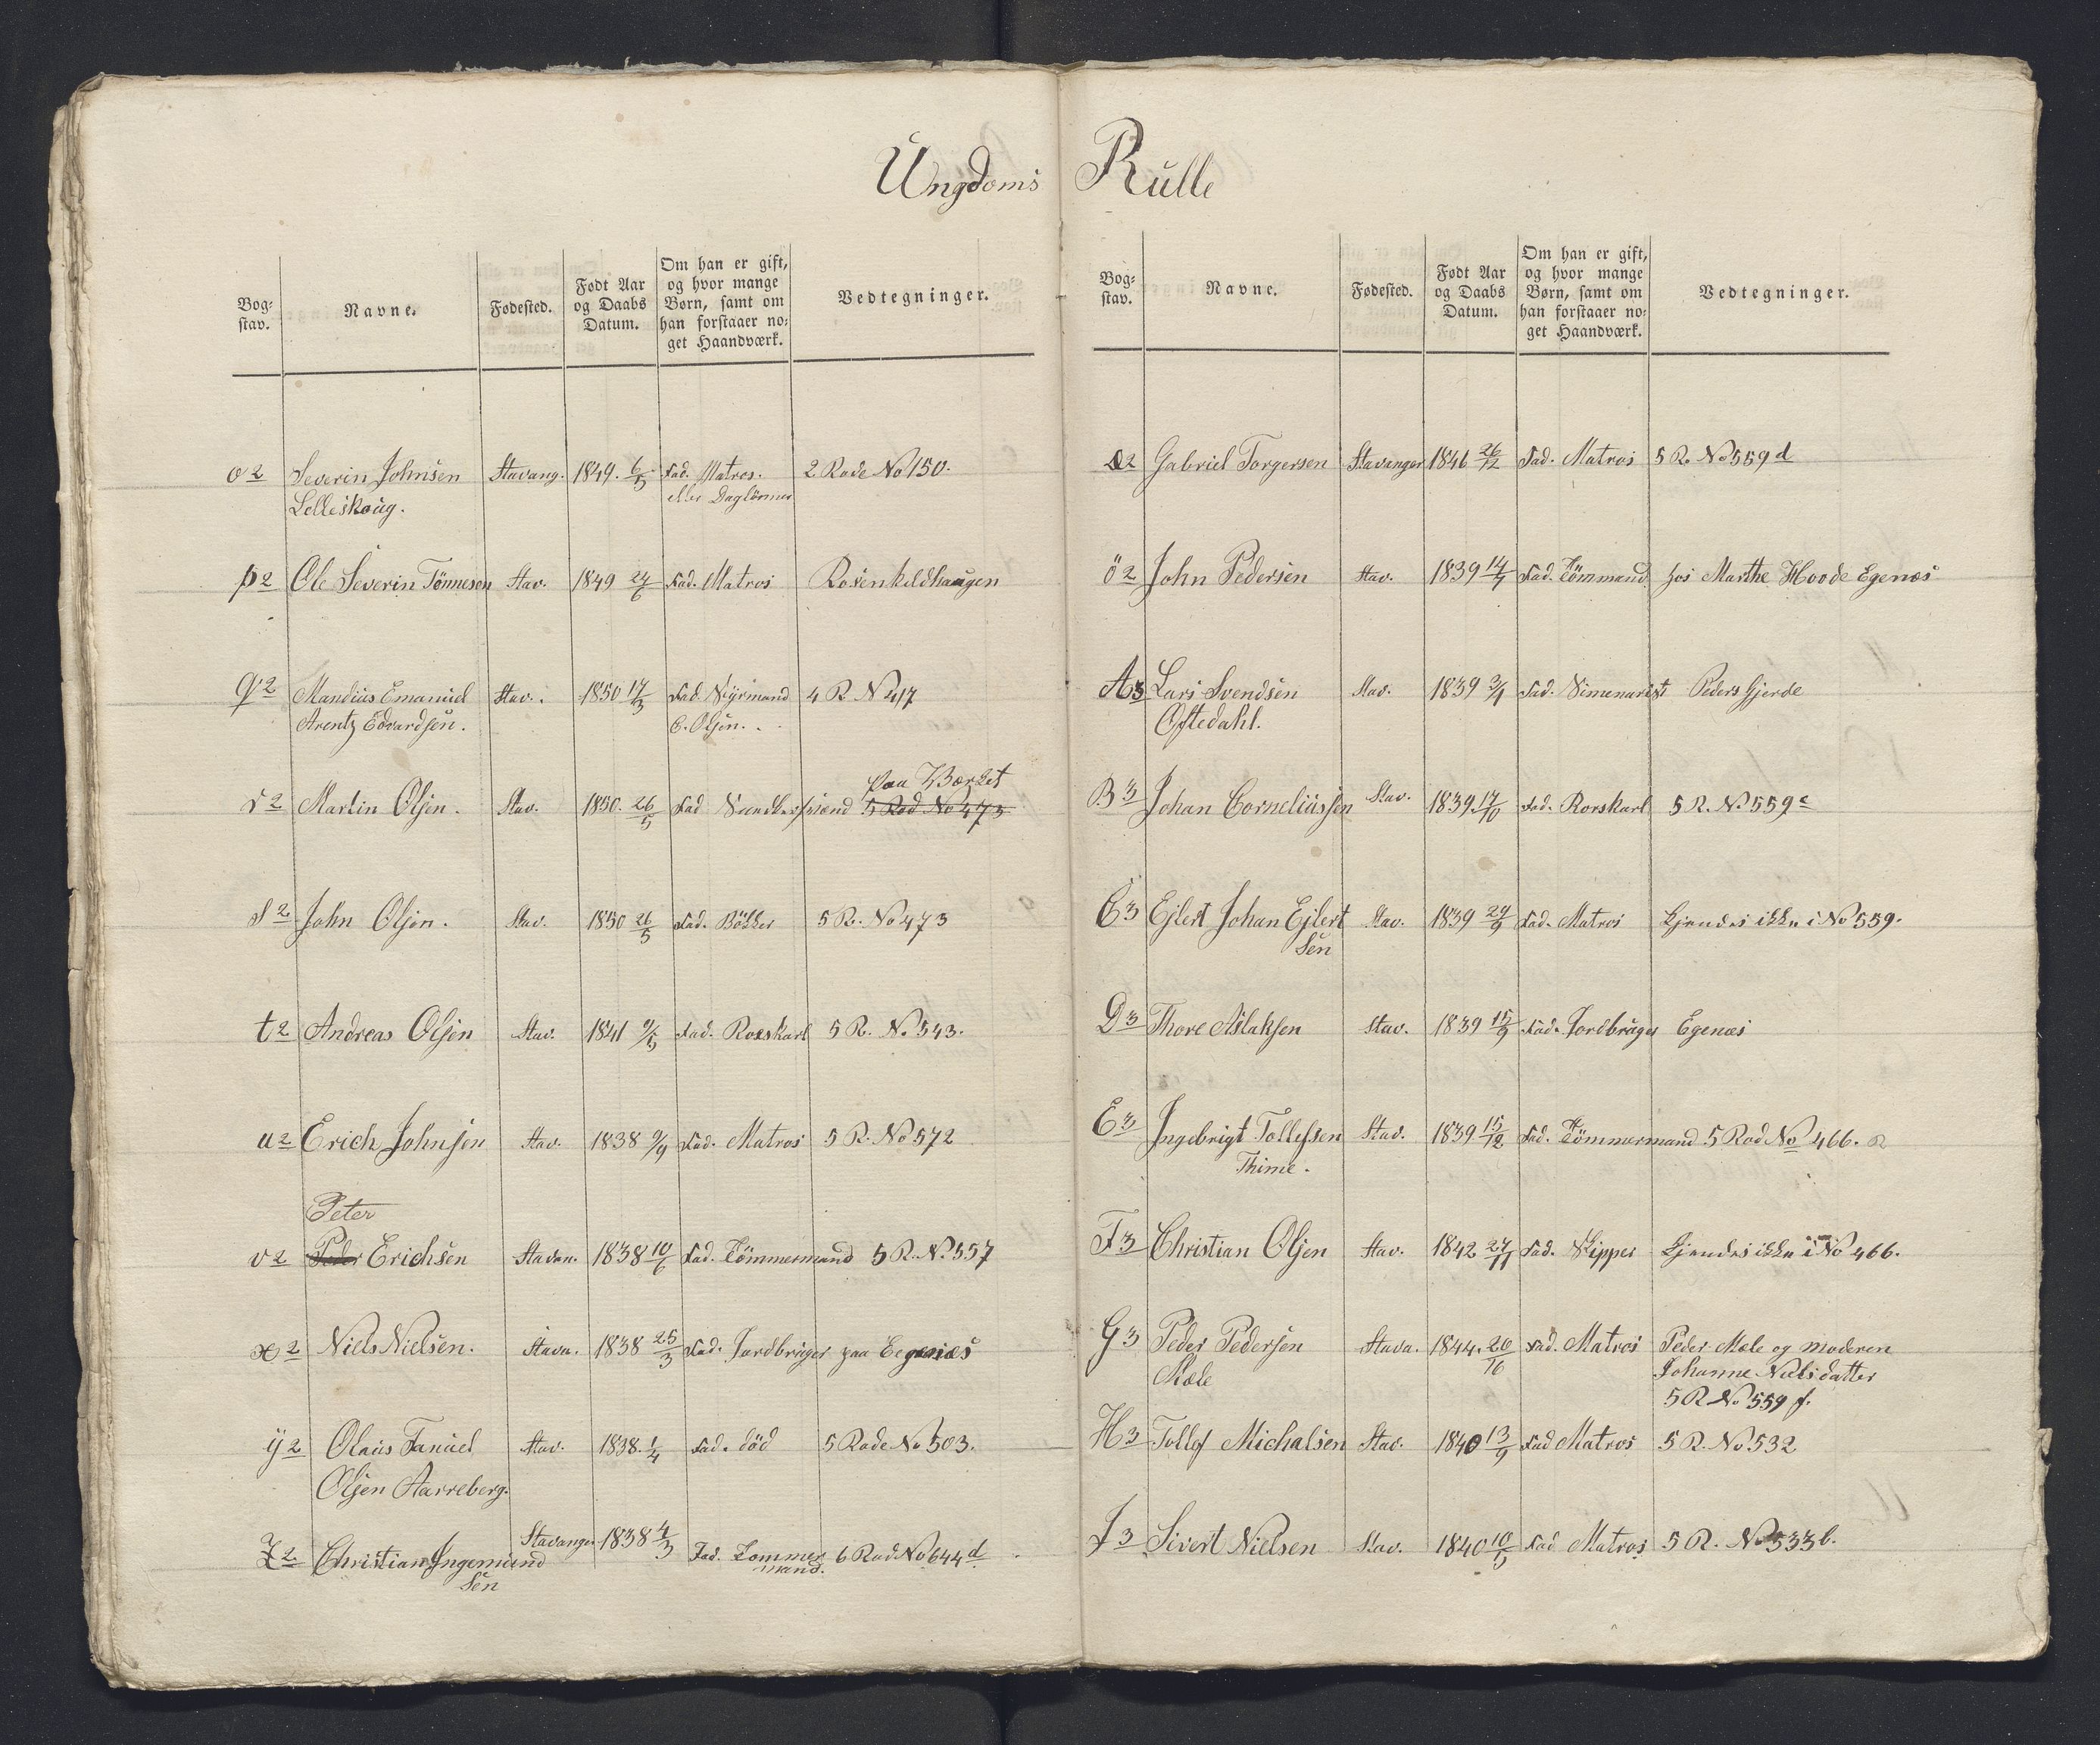 Ungdoms Rulle
Bog-
stav.
Navne.
Fødested.
Født Aar
og Daabs
Datum.
Om han er gift,
og hvor mange
Børn, samt om
han forstaaer no-
get Haandværk.
Vedtegninger.
o2 Severin Johnsen Stavang. 1849. 6/5 Fad. Matros. 2 Rode No 150.
Lelleskoug. eller Daglönner
p2 Ole Severin Tönnesen Stav. 1849 24/6 Fad. Matros Rosenkildhaugen
q2 Mandius Emanuel Stav. 1850 17/3 Fad. Styrmand 4 R. No 417
Arentz Edvardsen. E. Olsen.
paa Værket
r2 Martin Olsen. Stav. 1850. 26/5 Fad 5 Rod No 473
s2 John Olsen. Stav. 1850 26/5 Fad. Bökker 5 R. No 473
t2 Andreas Olsen Stav. 1841 9/5 Fad. Rorskarl 5 R. No 543.
u2 Erich Johnsen Stav. 1838 9/9 Fad. Matros 5 R. No 572
Peter
v2 Peder Erichsen Stavan. 1838 10/6 Fad. Tömmermand 5 R. No 557
x2 Niels Nielsen. Stava. 1838 25/3 Fad. Jordbruger paa Egenæs
ÿ2 Olaus Tanuel Stav. 1838. 1/4 Fad. död 5 Rode No 503.
Olsen Aarreberg.
Z2 Christian Ingemund Stavanger 1838 4/3 Fad. Tommer 6 Rod No 644 d
sen mand.
Bog-
stav.
Navne.
Fødested.
Født Aar
og Daabs
Datum.
Om han er gift,
og hvor mange
Børn, samt om
han forstaaer no-
get Haandværk.
Vedtegninger.
æ2 Gabriel Torgersen Stavanger 1846 26/12 Fad. Matros 5 R. No 559 d
ö2 John Pedersen Stav. 1839 14/7 Fad. Tömmand hos Marthe Hoode Egenæs
A3 Lars Svendsen Stav. 1839 3/1 Fad. Peders Gjerde
Oftedahl.
B3 Johan Corneliussen Stav. 1839 17/10 Fad. Rorskarl 5 R. No 559 c
C3 Ejlert Johan Ejlert Stav. 1839 29/9 Fad. Matros kjendes ikke i No 559.
sen
D3 Thore Aslaksen Stav. 1839 15/9 Fad. Jordbruger Egenæs
E3 Ingebrigt Tollefsen Stav. 1839 15/12 Fad. Tömmermand 5 Rod No 466. a
Thime.
F3 Christian Olsen Stav. 1842 27/11 Fad. Skipper kjendes ikke i No 466.
G3 Peder Pedersen Stava. 1844. 20/10 Fad. Matros Peder Mæle og moderen
Mæle Johanne Nielsdatter
5 R No 559 f.
H3 Tollef Michalsen Stav. 1840 13/9 Fad Matros 5 R. No 532
J3 Sivert Nielsen Stav. 1840 10/5 Fad Matros 5 R. No 533 b.